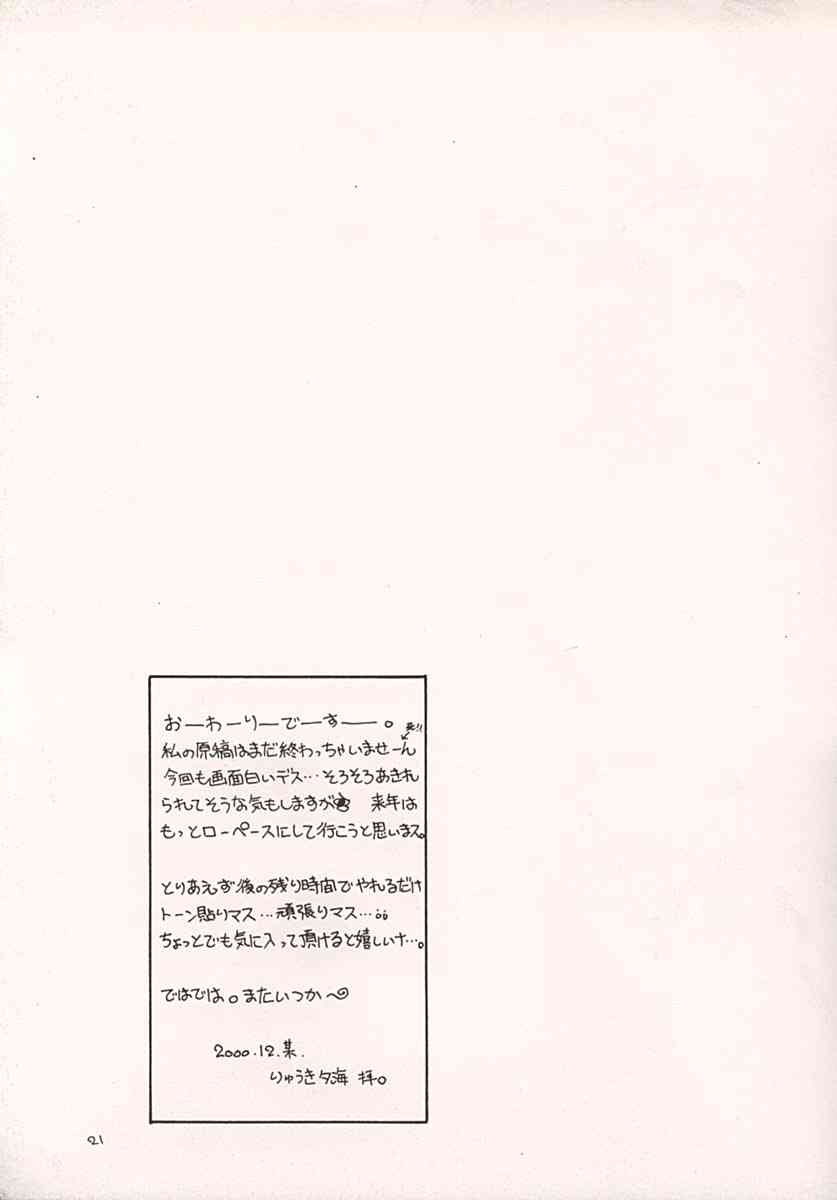 おーわーりーでーすー。
死!!
私の原稿はまだ終わっちゃいませーん
今回も画面白いデス…そろそろあきれ
られてそうな気もしますが 来年は
もっとローペースにして行こうと思いまス。
とりあえず後の残り時間でやれるだけ
トーン貼りマス…頑張りマス…
ちょっとでも気に入って頂けると嬉しいナ…。
ではでは。またいつか〜
2000.12.某.
りゅうき夕海 拝。
21